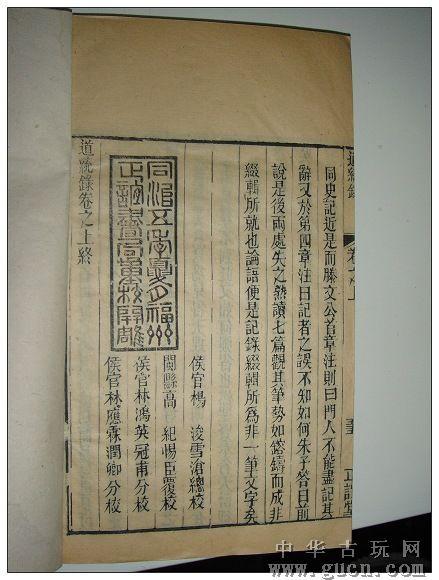 道統錄 卷之上 正誼堂
同史記近是而滕文公首章注則曰門人不能盡記其
辭又於第四章注曰記者之誤不知如何朱子答曰前
說是後兩處失之熟讀七篇觀其筆勢如鎔鑄而成非
綴輯所就也論語便是記錄綴輯所爲非一筆文字矣
侯官楊 浚雪滄總校
閩縣高 紀惕臣覆校
侯官林鴻英冠甫分校
侯官林應霖潤卿分校
同治五年夏月福州
正誼書局重校開雕
道統錄卷之上終
中华古玩网
www.gucn.com